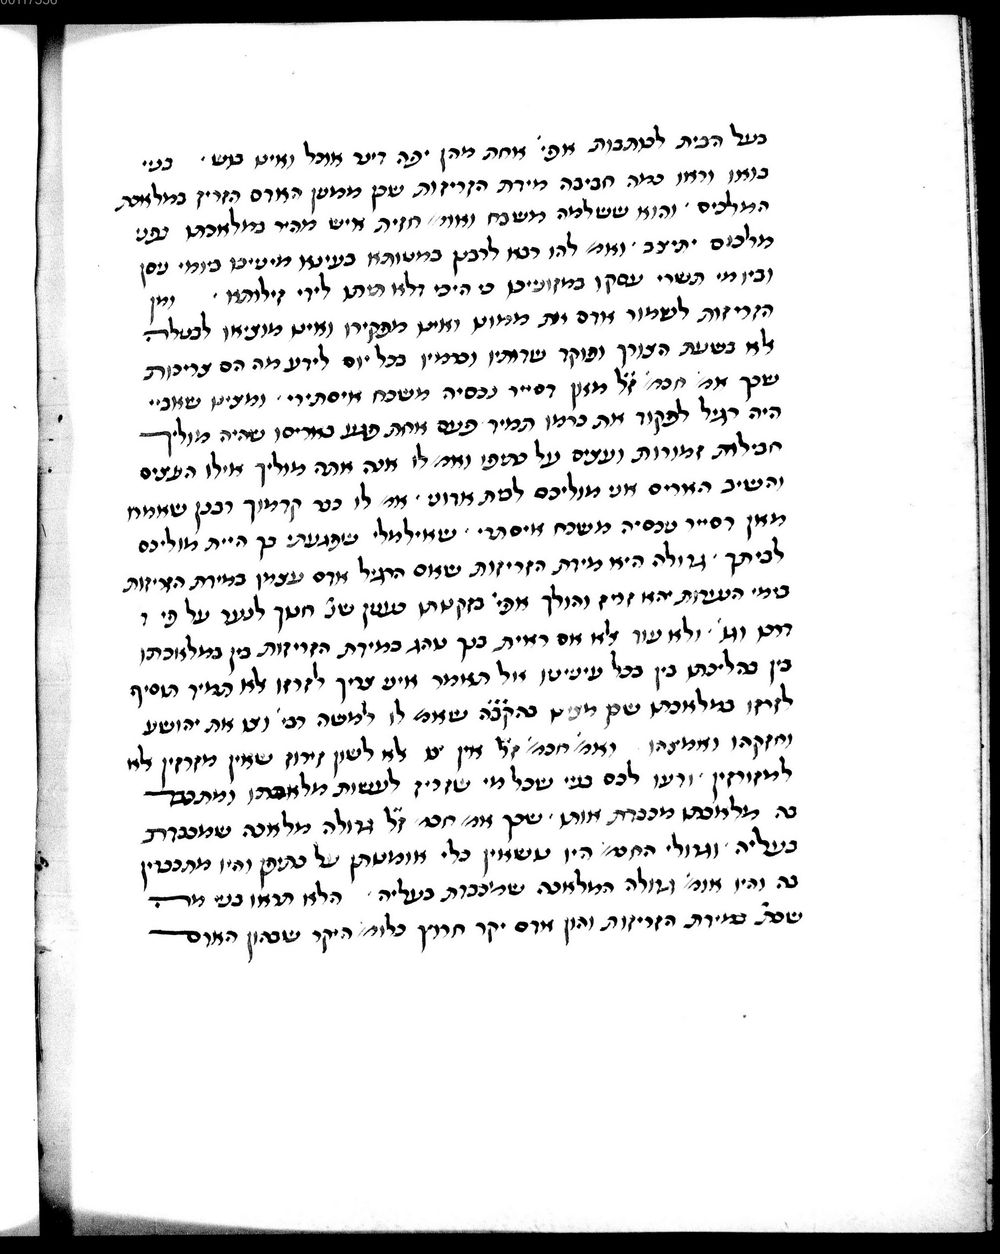 בעל הבית לכותבות אפי׳ אחת מהן יפה דינר אוכל ואינו בוש · בניי
בואו וראו כמה חביבה מידת הזריזות שכן ממשן האדם הזריז במלאכת
המלכים · והוא ששלמה משבח ואומ׳ חזית איש מהיר במלאכתו לפני
מלכים יתיצב · ואמ׳ להו רבא לרבנן במטותא בעינא מינייכו ביומי ניסן
וביומי תשרי עסקו במזונייכו כי היכי דלא תיתו לידי זילותא · ומן
הזריזות לשמור אדם את ממונו ואינו מפקירו ואינו מוציאו לבטלה
אלא בשעת הצורך ופוקד שדותיו וכרמיו בכל יום לידע מה הם צריכות
שכך אמ׳ חכמ׳ ז״ל מאן דסייר נכסיה משכח איסתירי · ומצינו שאביי
היה רגיל לפקוד את כרמו תמיד פעם אחת פגע באריסו שהיה מוליך
חבילות זמורות ועצים על כתיפו ואמ׳ לו אנה אתה מוליך אילו העצים
והשיב האריס אני מוליכם לבית אדוני · אמ׳ לו כבר קדמוך רבנן שאמרו
מאן דסייר נכסיה משכח איסתרי · שאילמלי שפגעתי בך היית מוליכם
לביתך · גדולה היא מידת הזריזות שאם הרגיל אדם עצמו במידת הזריזות
בימי הנערות יהא זריז והולך אפי׳ בזקנותו כענין שנ׳ חנוך לנער על פי
דרכו וגו׳ · ולא עוד אלא אם ראית בנך נוהג במידת הזריזות בין במלאכתו
בין בהליכתו בין בכל עינייניו אל תאמר אינו צריך לזרזו אלא תמיד תוסיף
לזרזו במלאכתו שכן מצינו בהקב״ה שאמ׳ לו למשה רבי׳ וצו את יהושע
וחזקהו ואמצהו ואמ׳ חכמ׳ ז״ל אין צו אלא לשון זירוז שאין מזרזין אלא
למזורזין · ודעו לכם בניי שכל מי שזריז לעשות מלאכתו ומתכבד
בה מלאכתו מכבדת אותו · שכך אמ׳ חכמ׳ ז״ל גדולה מלאכה שמכבדת
בעליה · וגדולי החכמ׳ היו נושאין כלי אומנותן על כתיפן והיו מתכבדין
בה והיו אומ׳ גדולה המלאכה שמכבדת בעליה · הלא תראו בניי מה
שכת׳ במידת הזריזות והון אדם יקר חרוץ כלומ׳ היקר שבהון האדם